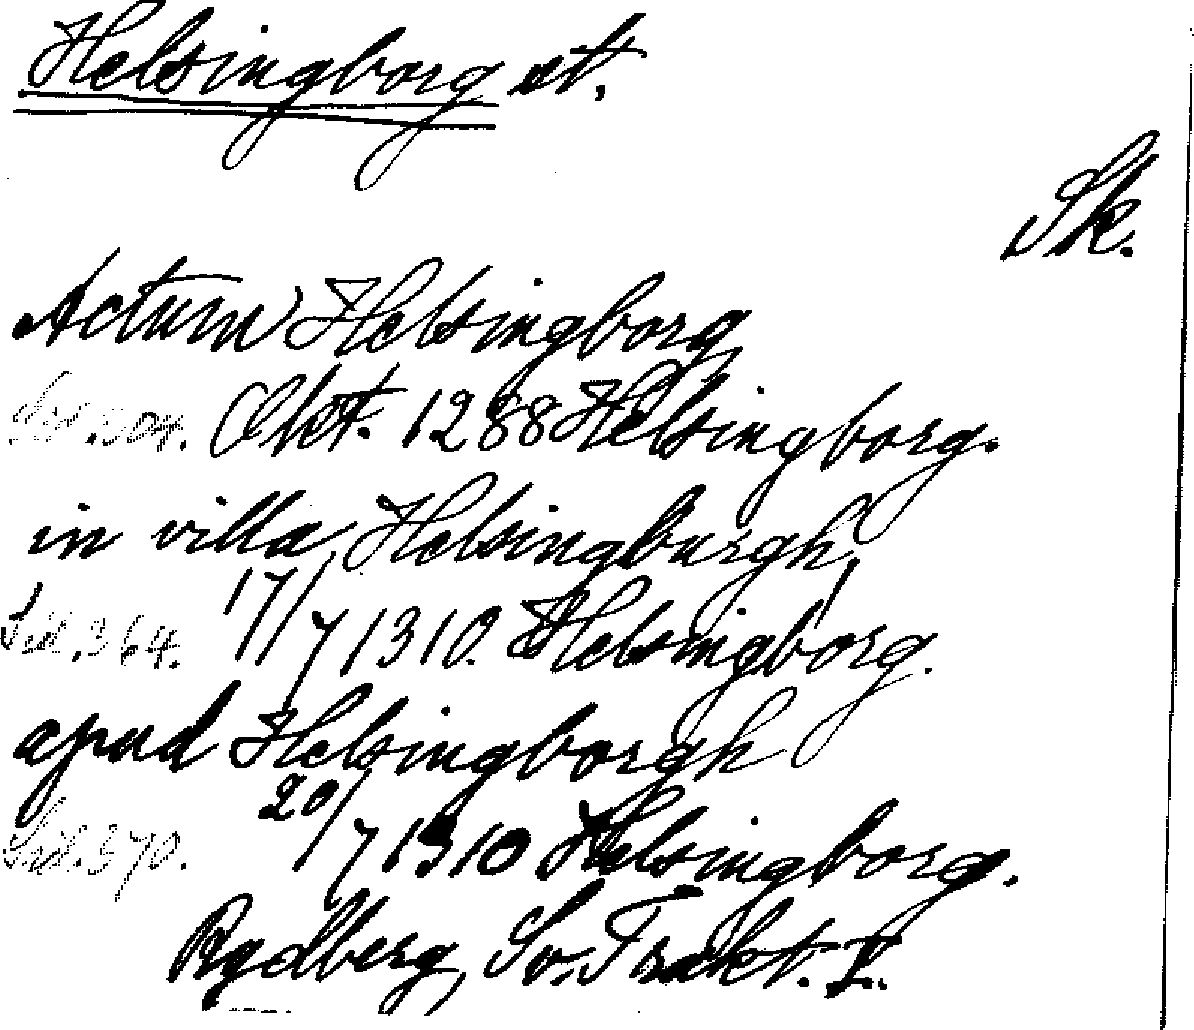 Helsingborg st.
Sk.
Actum Helsingborg
Sid. 304. Okt. 1288 Helsingborg.
in villa Helsingburgh,
Sid. 364. 17/7 1310. Helsingborg.
apud Helsingborgh
Sid. 370. 20/7 1310 Helsingborg.
Rydberg, Sv. Trakt. I.